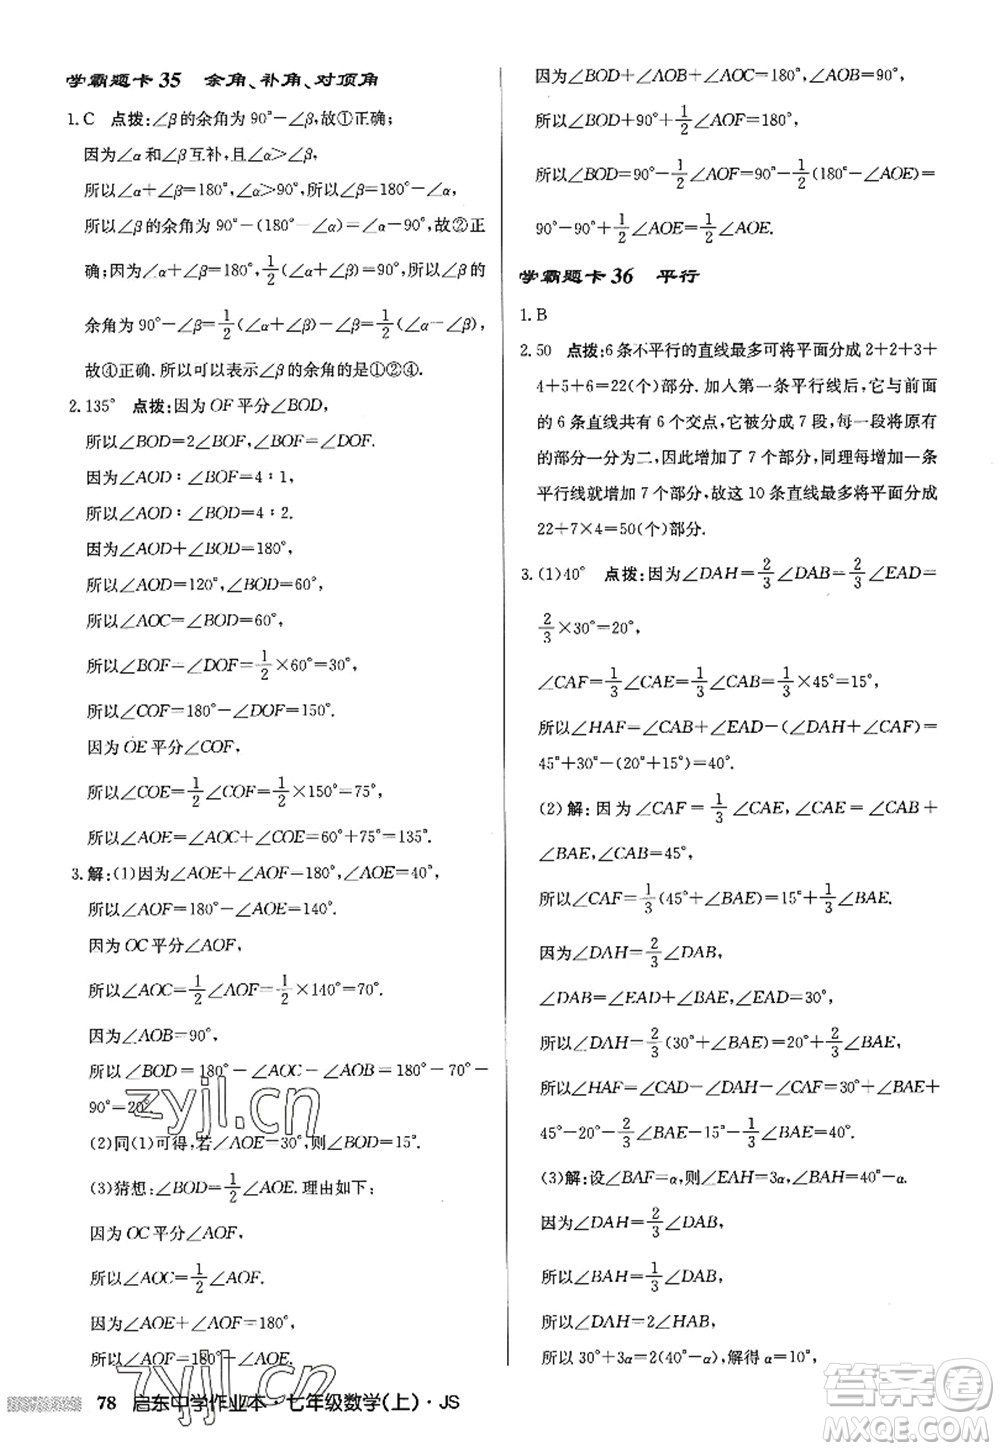 学霸题卡 35　余角、补角、对顶角
1.C　点拨:∠β的余角为 90°-∠β,故①正确;
因为∠α 和∠β互补,且∠α>∠β,
所以∠α+∠β=180°,∠α>90°,所以∠β=180°-∠α,
所以∠β的余角为 90°-(180°-∠α)=∠α-90°,故②正
确;因为∠α+∠β=180°,所以1/2(∠α+∠β)=90°,所以∠β的
余角为 90°-∠β=1/2(∠α+∠β)-∠β=1/2(∠α-∠β),
故④正确.所以可以表示∠β的余角的是①②④.
2.135°　点拨:因为 OF 平分∠BOD,
所以∠BOD=2∠BOF,∠BOF=∠DOF.
因为∠AOD:∠BOF=4:1,
所以∠AOD:∠BOD=4:2.
因为∠AOD+∠BOD=180°,
所以∠AOD=120°,∠BOD=60°,
所以∠AOC=∠BOD=60°,
所以∠BOF=∠DOF=1/2×60°=30°,
所以∠COF=180°-∠DOF=150°.
因为 OE 平分∠COF,
所以∠COE=1/2∠COF=1/2×150°=75°,
所以∠AOE=∠AOC+∠COE=60°+75°=135°.
3.解:(1)因为∠AOE+∠AOF=180°,∠AOE=40°,
所以∠AOF=180°-∠AOE=140°.
因为 OC 平分∠AOF,
所以∠AOC=1/2∠AOF=1/2×140°=70°.
因为∠AOB=90°,
所以∠BOD=180°-∠AOC-∠AOB=180°-70°-
90°=20°.
(2)同(1)可得,若∠AOE=30°,则∠BOD=15°.
(3)猜想:∠BOD=1/2∠AOE.理由如下:
因为 OC 平分∠AOF,
所以∠AOC=1/2∠AOF.
因为∠AOE+∠AOF=180°,
所以∠AOF=180°-∠AOE.
因为∠BOD+∠AOB+∠AOC=180°,∠AOB=90°,
所以∠BOD+90°+1/2∠AOF=180°,
所以∠BOD=90°-1/2∠AOF=90°-1/2(180°-∠AOE)=
90°-90°+1/2∠AOE=1/2∠AOE.
学霸题卡 36　平行
1.B
2.50　点拨:6 条不平行的直线最多可将平面分成 2+2+3+
4+5+6=22(个)部分.加入第一条平行线后,它与前面
的 6 条直线共有 6 个交点,它被分成 7 段,每一段将原有
的部分一分为二,因此增加了 7 个部分,同理每增加一条
平行线就增加 7 个部分,故这 10 条直线最多将平面分成
22+7×4=50(个)部分.
3.(1)40°　点拨:因为∠DAH=2/3∠DAB=2/3∠EAD=
2/3×30°=20°,
∠CAF=1/3∠CAE=1/3∠CAB=1/3×45°=15°,
所以∠HAF=∠CAB+∠EAD-(∠DAH+∠CAF)=
45°+30°-(20°+15°)=40°.
(2)解:因为∠CAF=1/3∠CAE,∠CAE=∠CAB+
∠BAE,∠CAB=45°,
所以∠CAF=1/3(45°+∠BAE)=15°+1/3∠BAE.
因为∠DAH=2/3∠DAB,
∠DAB=∠EAD+∠BAE,∠EAD=30°,
所以∠DAH=2/3(30°+∠BAE)=20°+2/3∠BAE,
所以∠HAF=∠CAB-∠DAH-∠CAF=30°+∠BAE+
45°-20°-2/3∠BAE-15°-1/3∠BAE=40°.
(3)解:设∠BAF=α,则∠EAH=3α,∠BAH=40°-α.
因为∠DAH=2/3∠DAB,
所以∠BAH=1/3∠DAB,
所以∠DAB=2∠HAB,
所以 30°+3α=2(40°-α),解得 α=10°,
78　启东中学作业本·七年级数学(上)·JS
zyjl.cn
答案圈
MXQE.COM